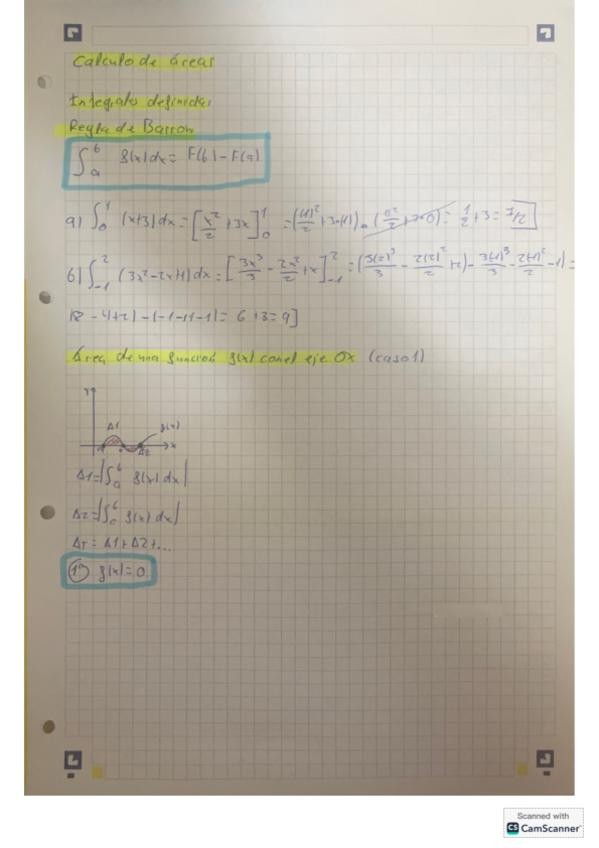 Calculo de áreas
Integrales definidas
Regla de Barrow
∫_a^b f(x)dx = F(b) - F(a)
a) ∫_0^1 (x+3)dx = [x²/2 + 3x]_0^1 = ((1)²/2 + 3·(1)) - (0²/2 + 3·0) = 1/2 + 3 = 7/2]
b) ∫_-1^2 (3x²-2x+1)dx = [3x³/3 - 2x²/2 + x]_-1^2 = (3(2)³/3 - 2(2)²/2 + 2) - 3(-1)³/3 - 2(-1)²/2 - 1) =
(8 - 4 + 2) - (-1 -1 -1) = 6 + 3 = 9]
Área de una función f(x) con el eje OX (caso 1)
Y
A1 f(x)
A2 x
A1 = |∫_a^b f(x) dx|
A2 = |∫ f(x) dx|
AT = A1 + A2 + ...
1º f(x) = 0
Scanned with
CS CamScanner